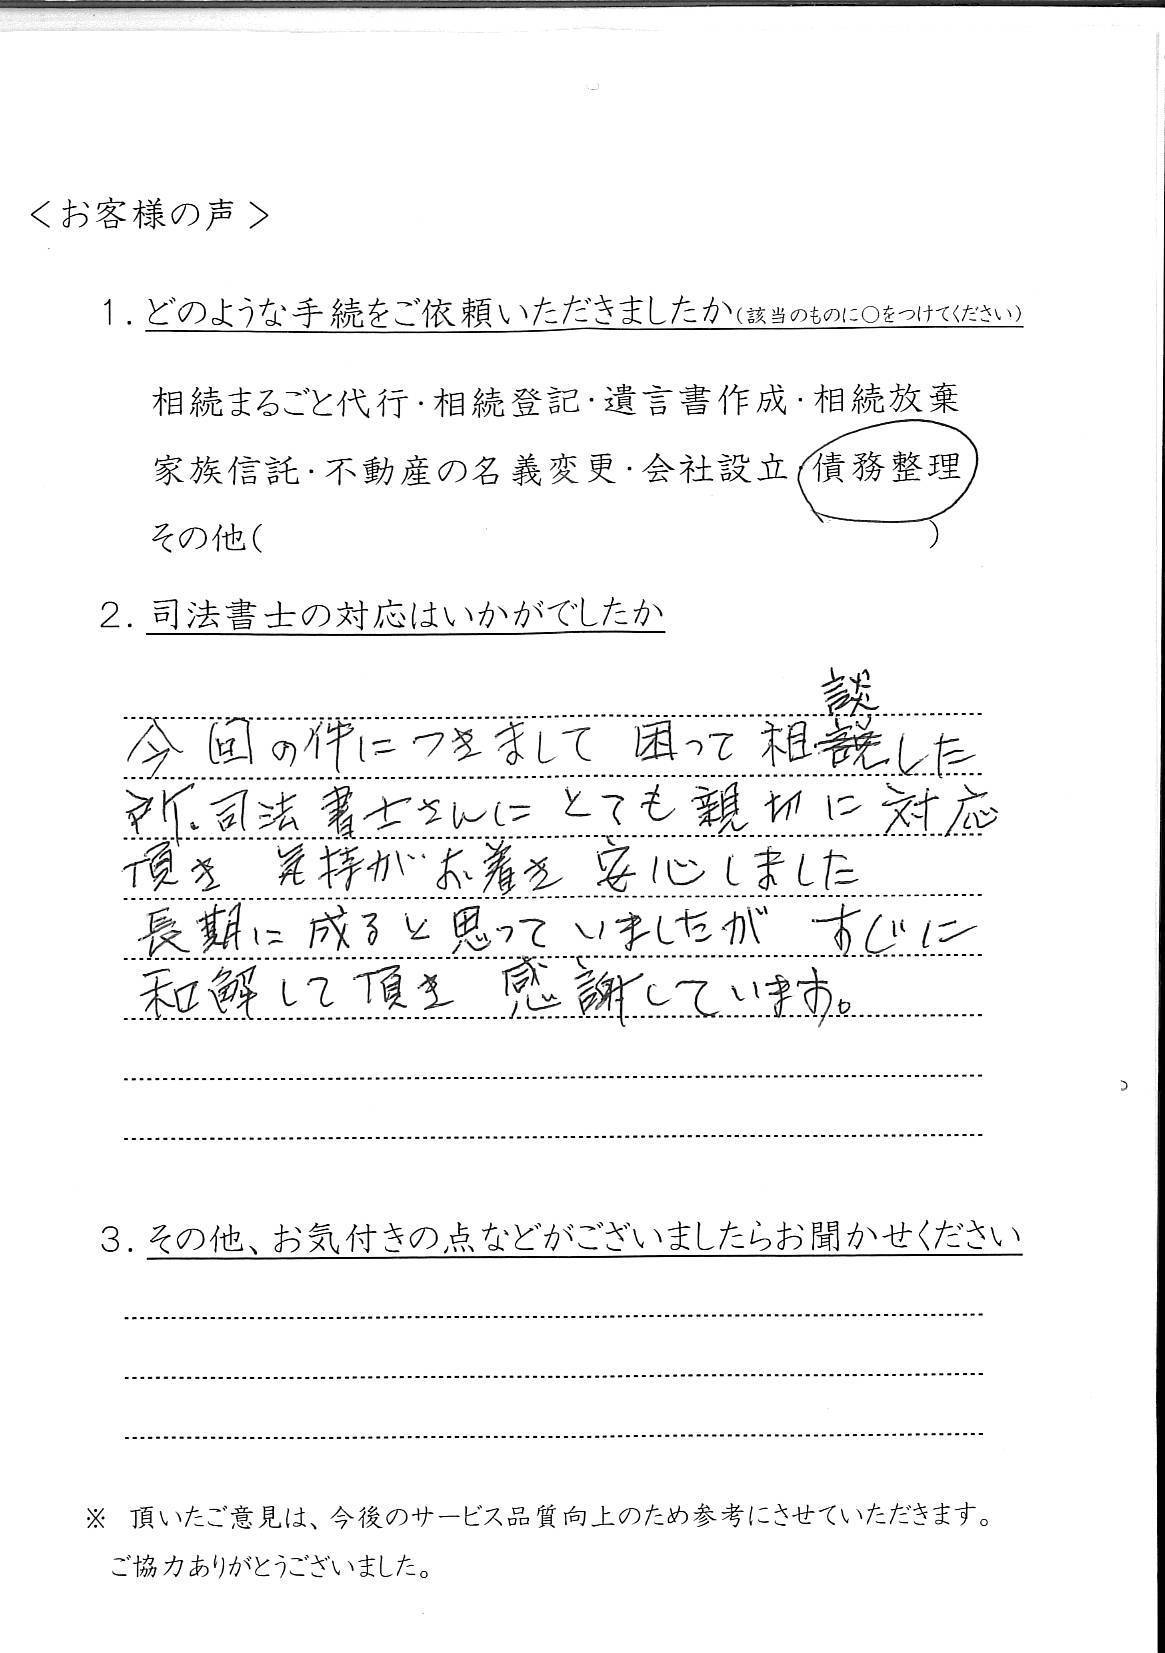 ＜お客様の声＞
1. どのような手続をご依頼いただきましたか(該当のものに○をつけてください)
相続まるごと代行・相続登記・遺言書作成・相続放棄
家族信託・不動産の名義変更・会社設立・債務整理
その他(　　　　　　　　　　)
2. 司法書士の対応はいかがでしたか
談
今回の件につきまして 困って 相した
所、司法書士さんに とても 親切に 対応
頂き 気持がお着き 安心しました
長期に成ると思っていましたが すじに
和解して頂き 感謝しています。
3. その他、お気付きの点などがございましたらお聞かせください
※ 頂いたご意見は、今後のサービス品質向上のため参考にさせていただきます。
ご協力ありがとうございました。